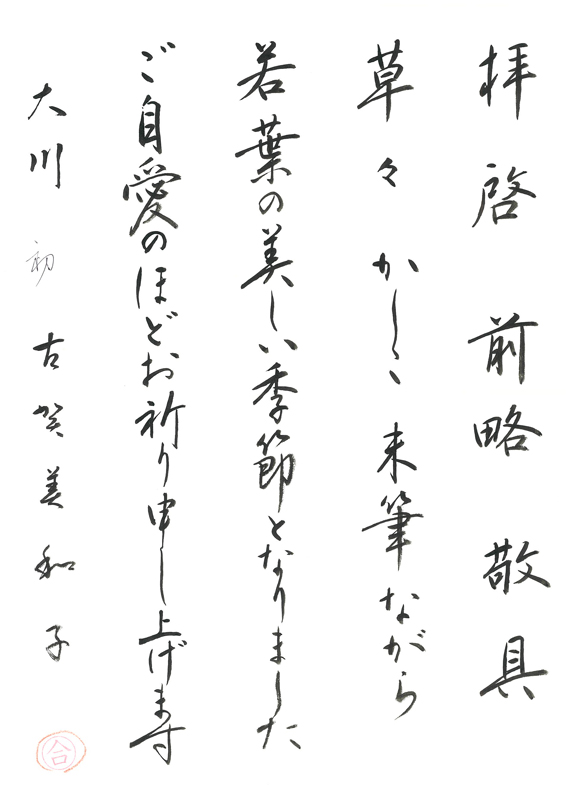 拝啓 前略 敬具
草々 かしく 末筆ながら
若葉の美しい季節となりました
ご自愛のほどお祈り申し上げます
大川 初 古賀美和子
合